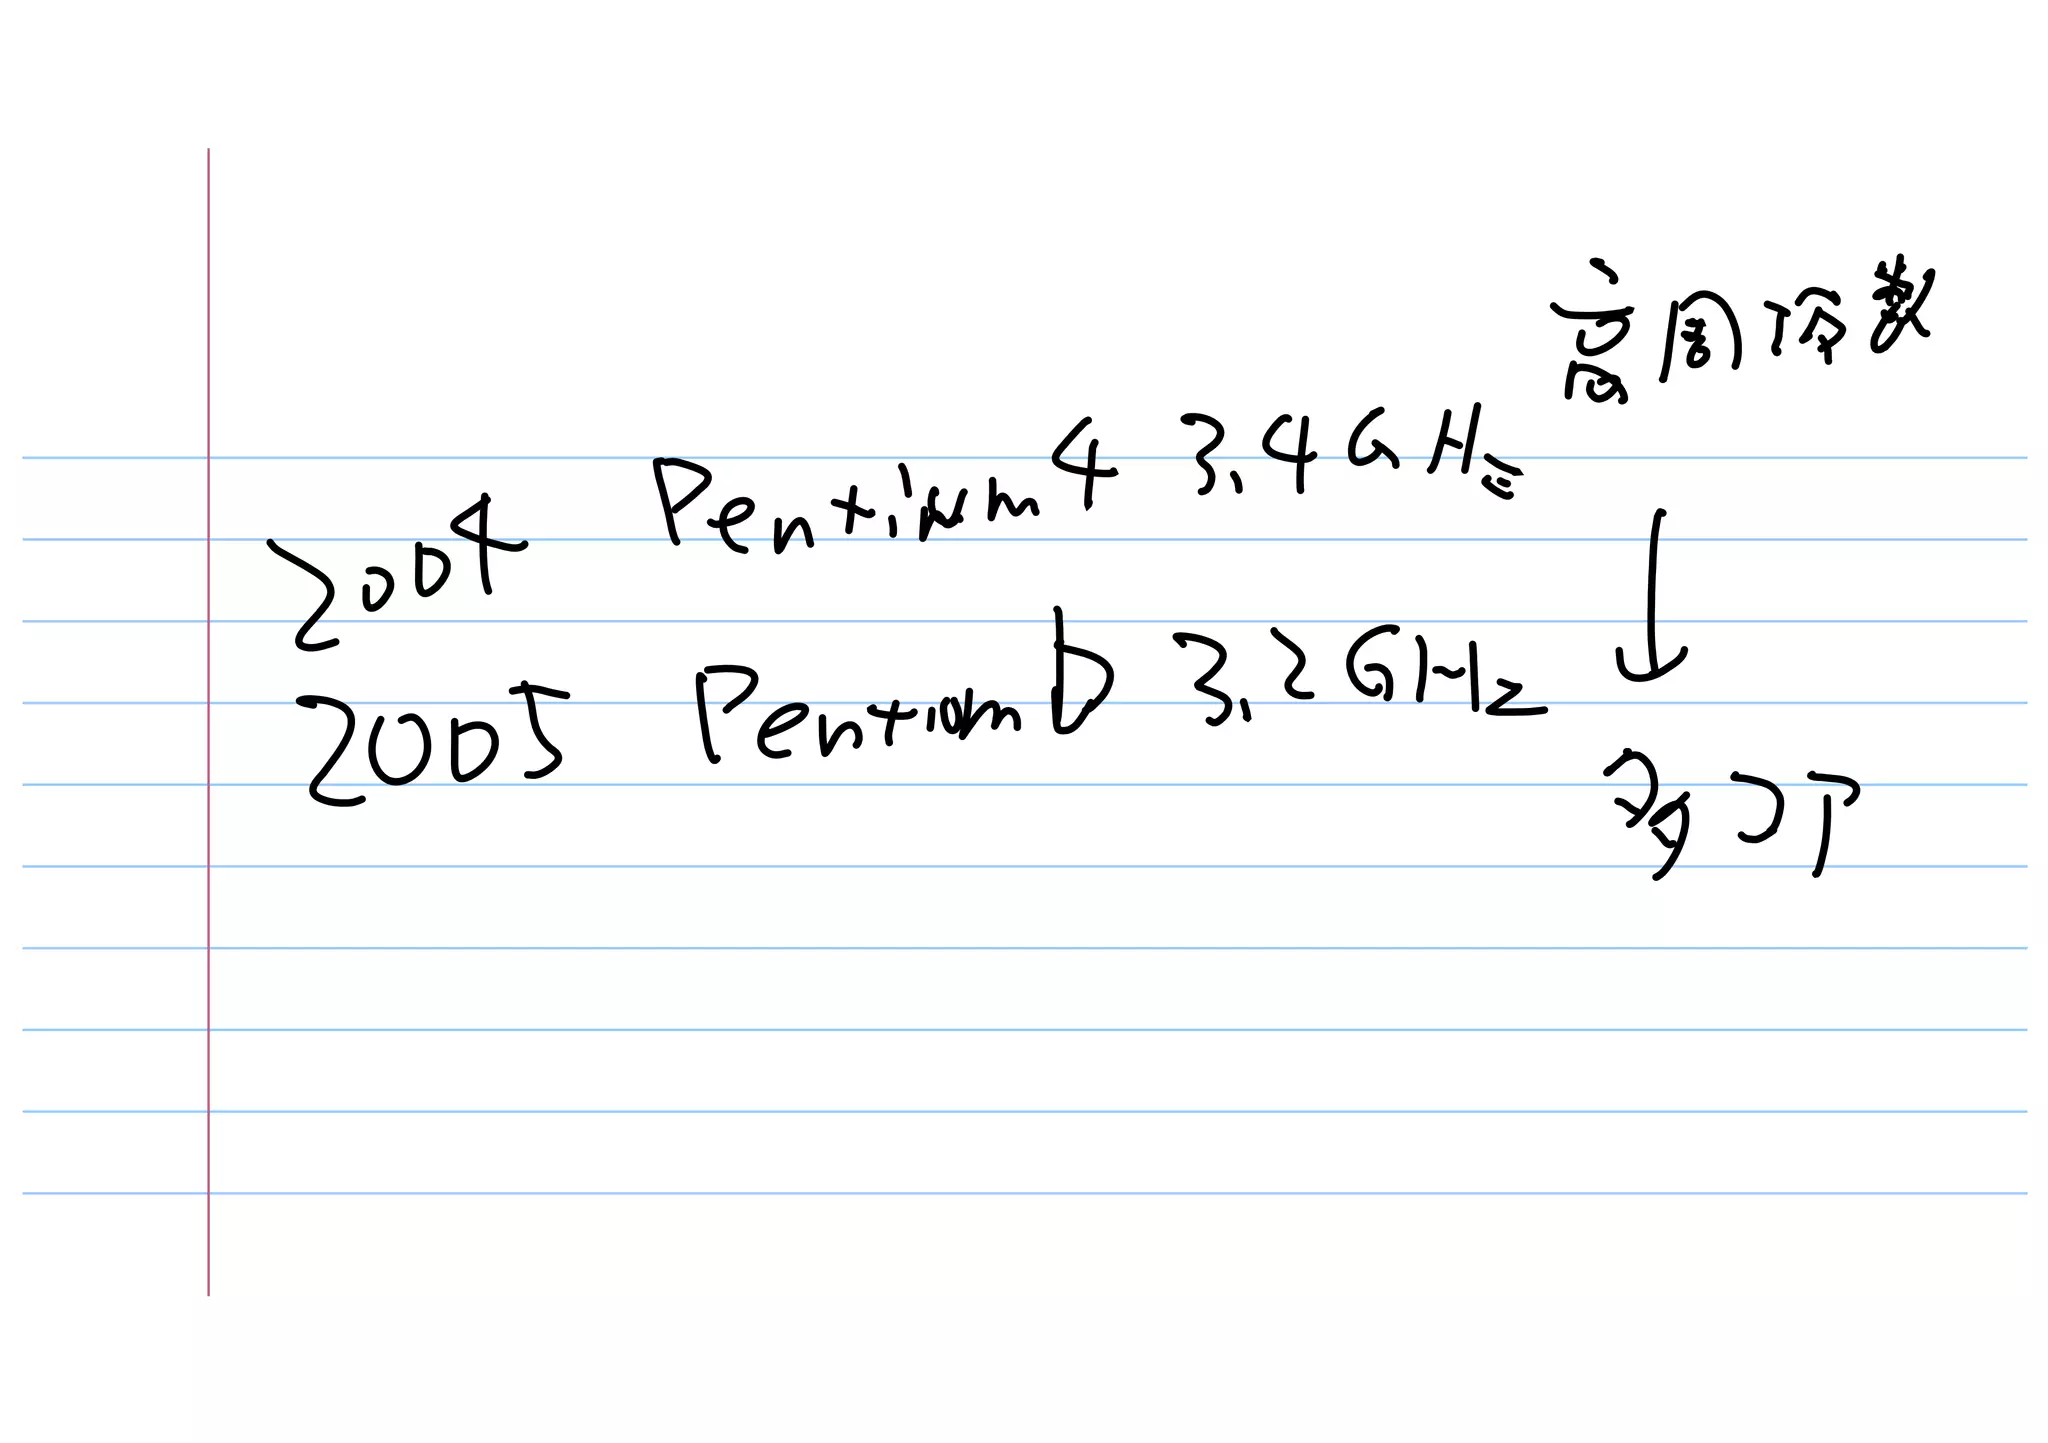 高周波数
2004 Pentium4 3.4GHz
↓
2005 PentiumD 3.2GHz
多コア